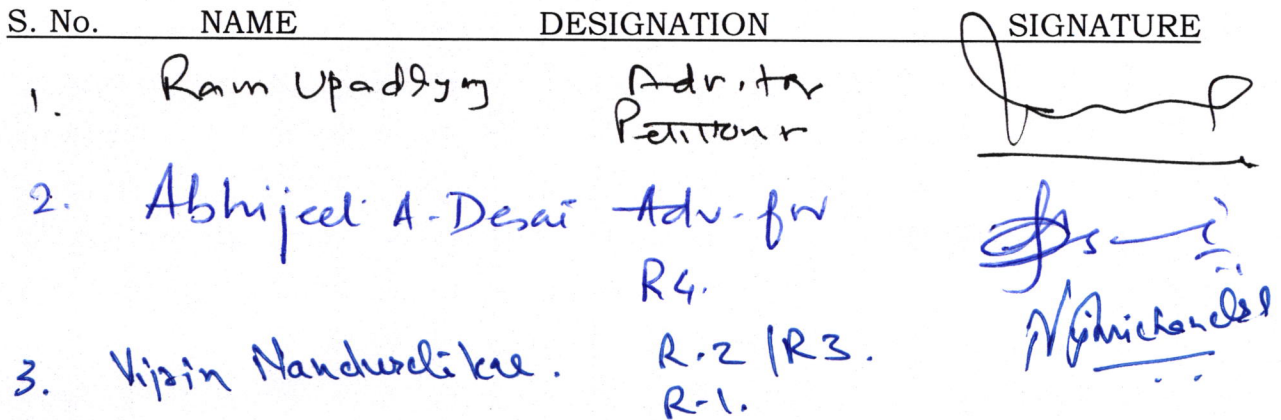 S. No. NAME DESIGNATION SIGNATURE
1. Ram Upadhyay Adv. for
Petitioner
2. Abhijeet A. Desai Adv. for
R4.
3. Vipin R-2 / R3.
R-1.